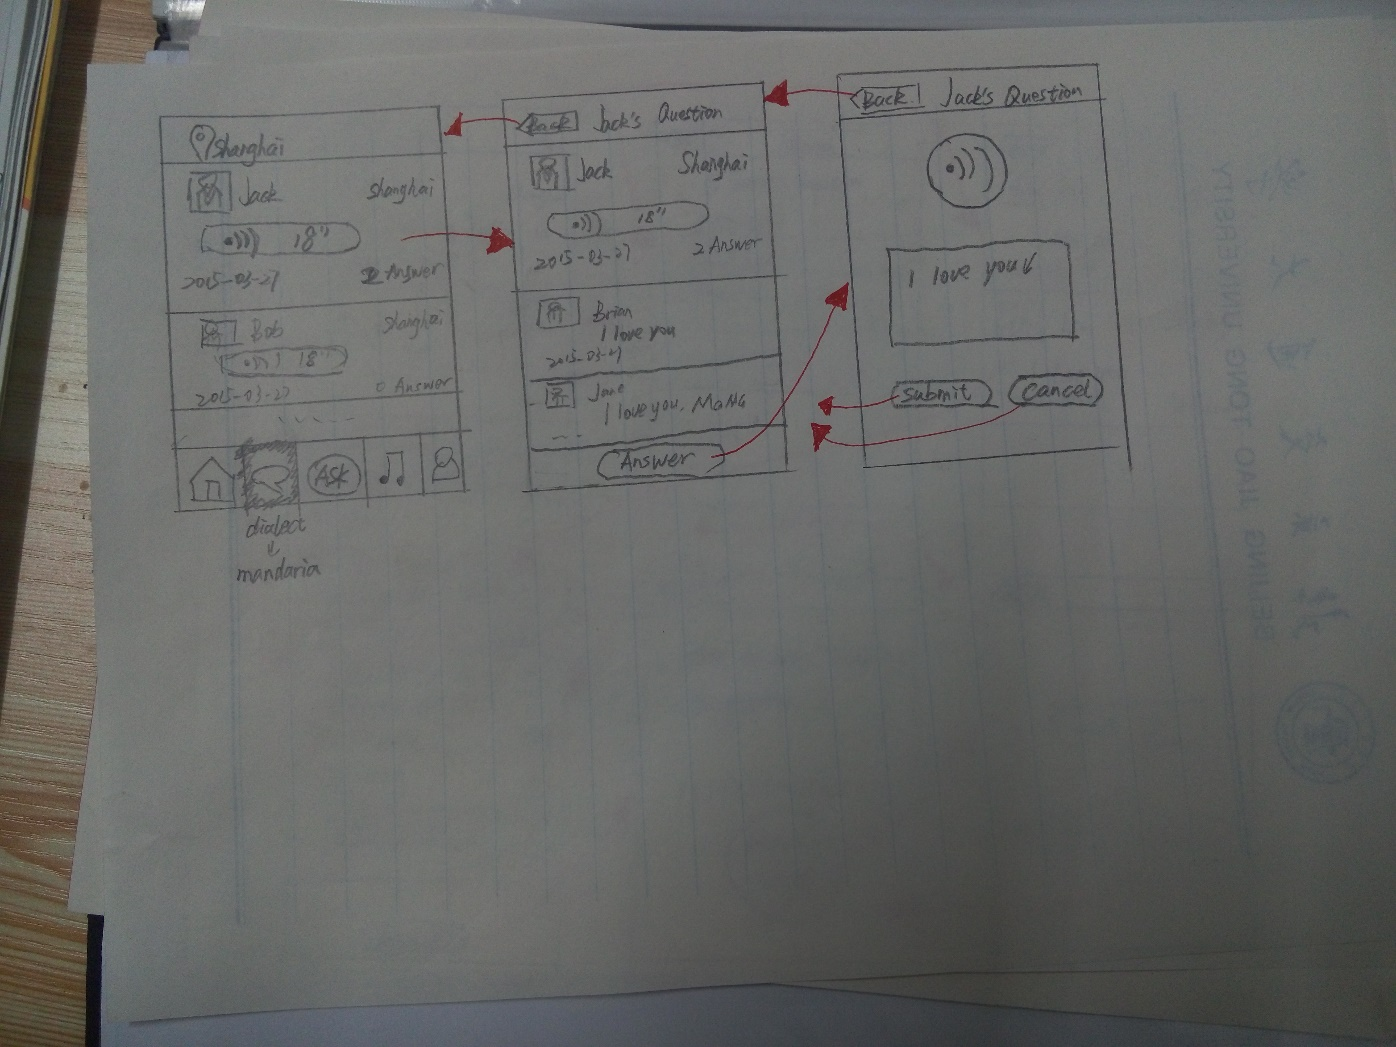 Shanghai
Jack Shanghai
18"
2015-03-27 2 Answer
Bob Shanghai
18"
2015-03-27 0 Answer
Ask
dialect
mandaria
Back Jack's Question
Jack Shanghai
18"
2015-03-27 2 Answer
Brian
I love you
2015-03-27
Jane
I love you, MaMa
Answer
Back Jack's Question
I love you
Submit Cancel
BEIJING JIAO TONG UNIVERSITY